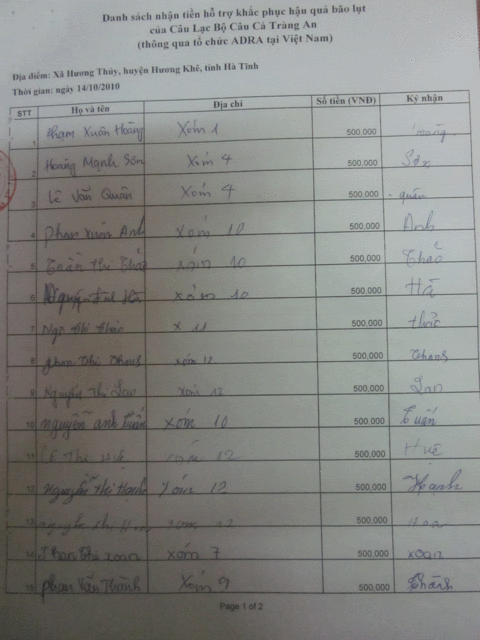 Danh sách nhận tiền hỗ trợ khắc phục hậu quả bão lụt
của Câu Lạc Bộ Câu Cá Tràng An
(thông qua tổ chức ADRA tại Việt Nam)
Địa điểm: Xã Hương Thủy, huyện Hương Khê, tỉnh Hà Tĩnh
Thời gian: ngày 14/10/2010
STT Họ và tên Địa chỉ Số tiền (VNĐ) Ký nhận
1 Phạm Xuân Hoàng Xóm 1 500,000
2 Hoàng Mạnh Sơn Xóm 4 500,000 Sơn
3 Lê Văn Quân Xóm 4 500,000 quân
4 Phan Xuân Anh Xóm 10 500,000 Anh
5 Trần Thị Thảo xóm 10 500,000 Thảo
6 Hà xóm 10 500,000 Hà
7 Ngô Thị x 11 500,000
8 Phan Thị xóm 12 500,000
9 Nguyễn Thị Lan xóm 12 500,000 Lan
10 nguyễn anh Tuấn xóm 10 500,000 Tuấn
11 Lê Thị Huệ xóm 12 500,000 Huệ
12 Nguyễn Thị Hạnh xóm 12 500,000 Hạnh
13 nguyễn thị Hoa xóm 12 500,000 Hoa
14 Phan Thị xoan xóm 7 500,000 xoan
15 phan Văn Thành Xóm 9 500,000 Thành
Page 1 of 2